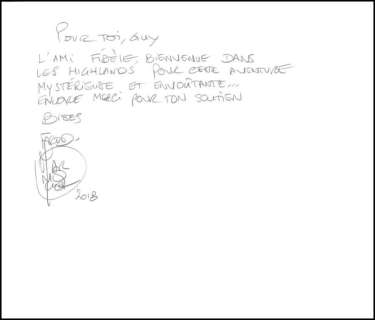 POUR TOI, GUY
L'AMI FIDÈLE, BIENVENUE DANS
LES HIGHLANDS POUR CETTE AVENTURE
MYSTÉRIEUSE ET ENVOÛTANTE...
ENCORE MERCI POUR TON SOUTIEN
BISES
2018